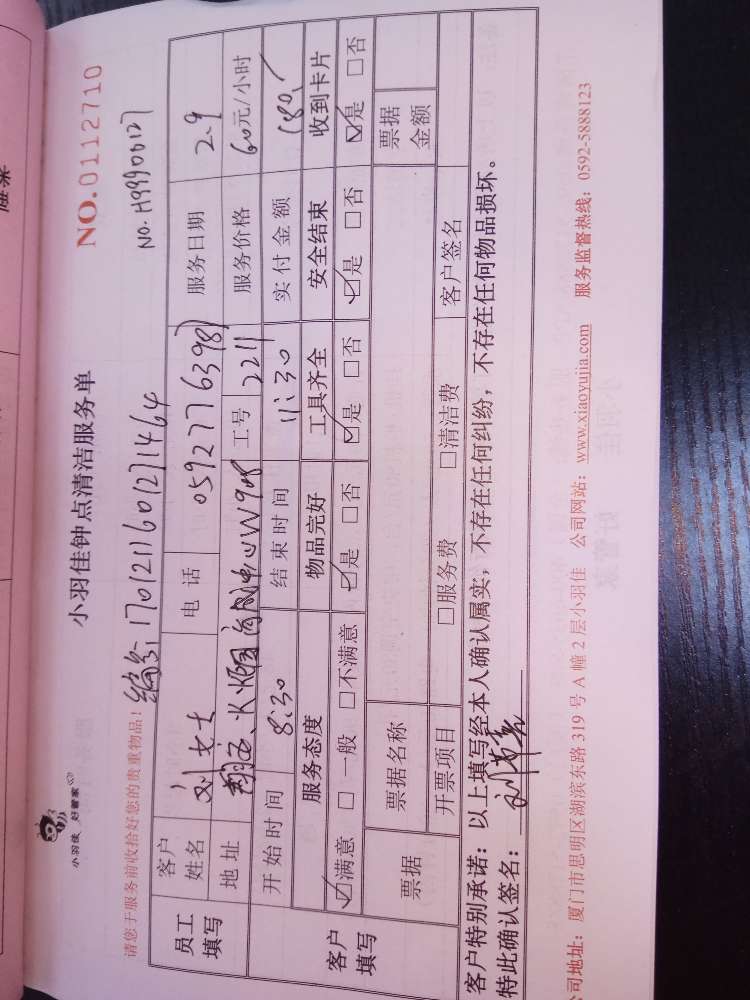 小羽佳 好管家
小羽佳钟点清洁服务单
NO.0112710
请您于服务前收拾好您的贵重物品! 编号:170121160121464
NO.H99900127
员工填写
客户姓名 刘女士 电话 05927763987 服务日期 2.9
地址 工号 2211 服务价格 60元/小时
客户填写
开始时间 8:30 结束时间 11:30 实付金额 180
服务态度 物品完好 工具齐全 安全结束 收到卡片
☑满意 □一般 □不满意 ☑是 □否 ☑是 □否 ☑是 □否 ☑是 □否
票据 票据名称 票据金额
开票项目 □服务费 □清洁费 客户签名
客户特别承诺:以上填写经本人确认属实,不存在任何纠纷,不存在任何物品损坏。
特此确认签名:
公司地址:厦门市思明区湖滨东路 319 号 A 幢 2 层小羽佳 公司网站:www.xiaoyujia.com 服务监督热线:0592-5888123